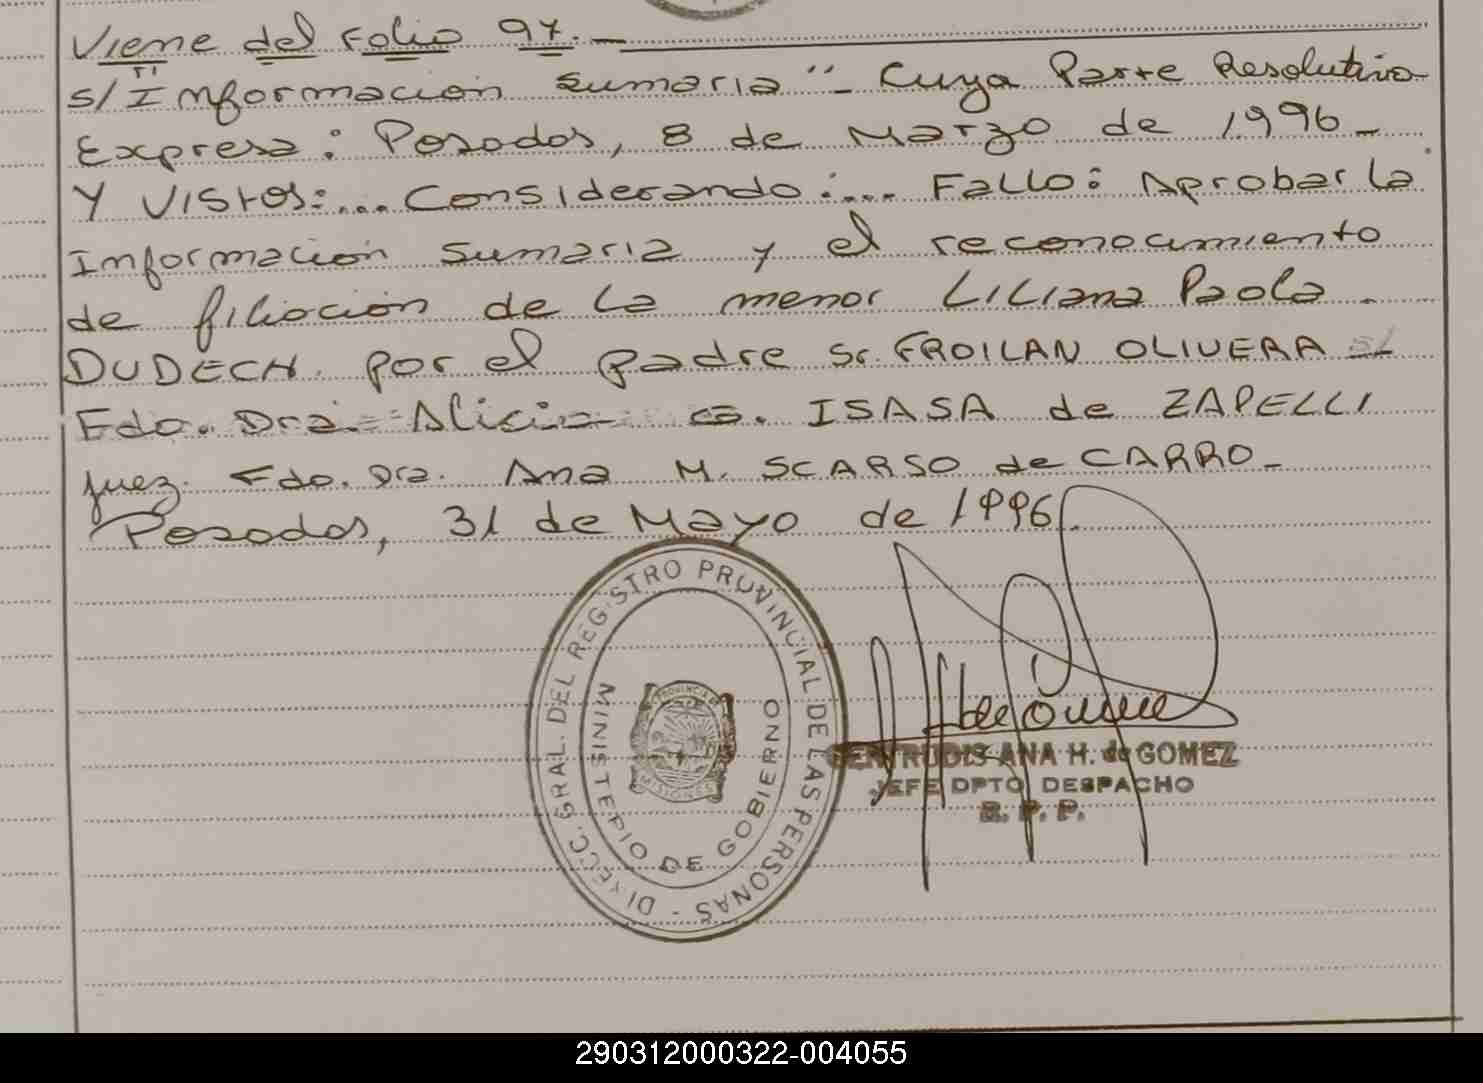 Viene del Folio 97.-
s/Información sumaria"- Cuya Parte Resolutiva
Expresa: Posadas, 8 de Marzo de 1996-
Y VISTOS:... Considerando:... FALLO: Aprobar la
Información Sumaria y el reconocimiento
de filiación de la menor LILiana Paola.
DUDECH. por el padre Sr. FROILAN OLIVERA s/
Fdo. Dra. Alicia ISASA de ZAPELLI
juez. Fdo. Dra. Ana M. SCARSO de CARRO-
Posadas, 31 de Mayo de 1996.
DIRECC. GRAL. DEL REGISTRO PROVINCIAL DE LAS PERSONAS -
MINISTERIO DE GOBIERNO
PROVINCIA DE
MISIONES
GERTRUDIS ANA H. de GOMEZ
JEFE DPTO. DESPACHO
R. P. P.
290312000322-004055